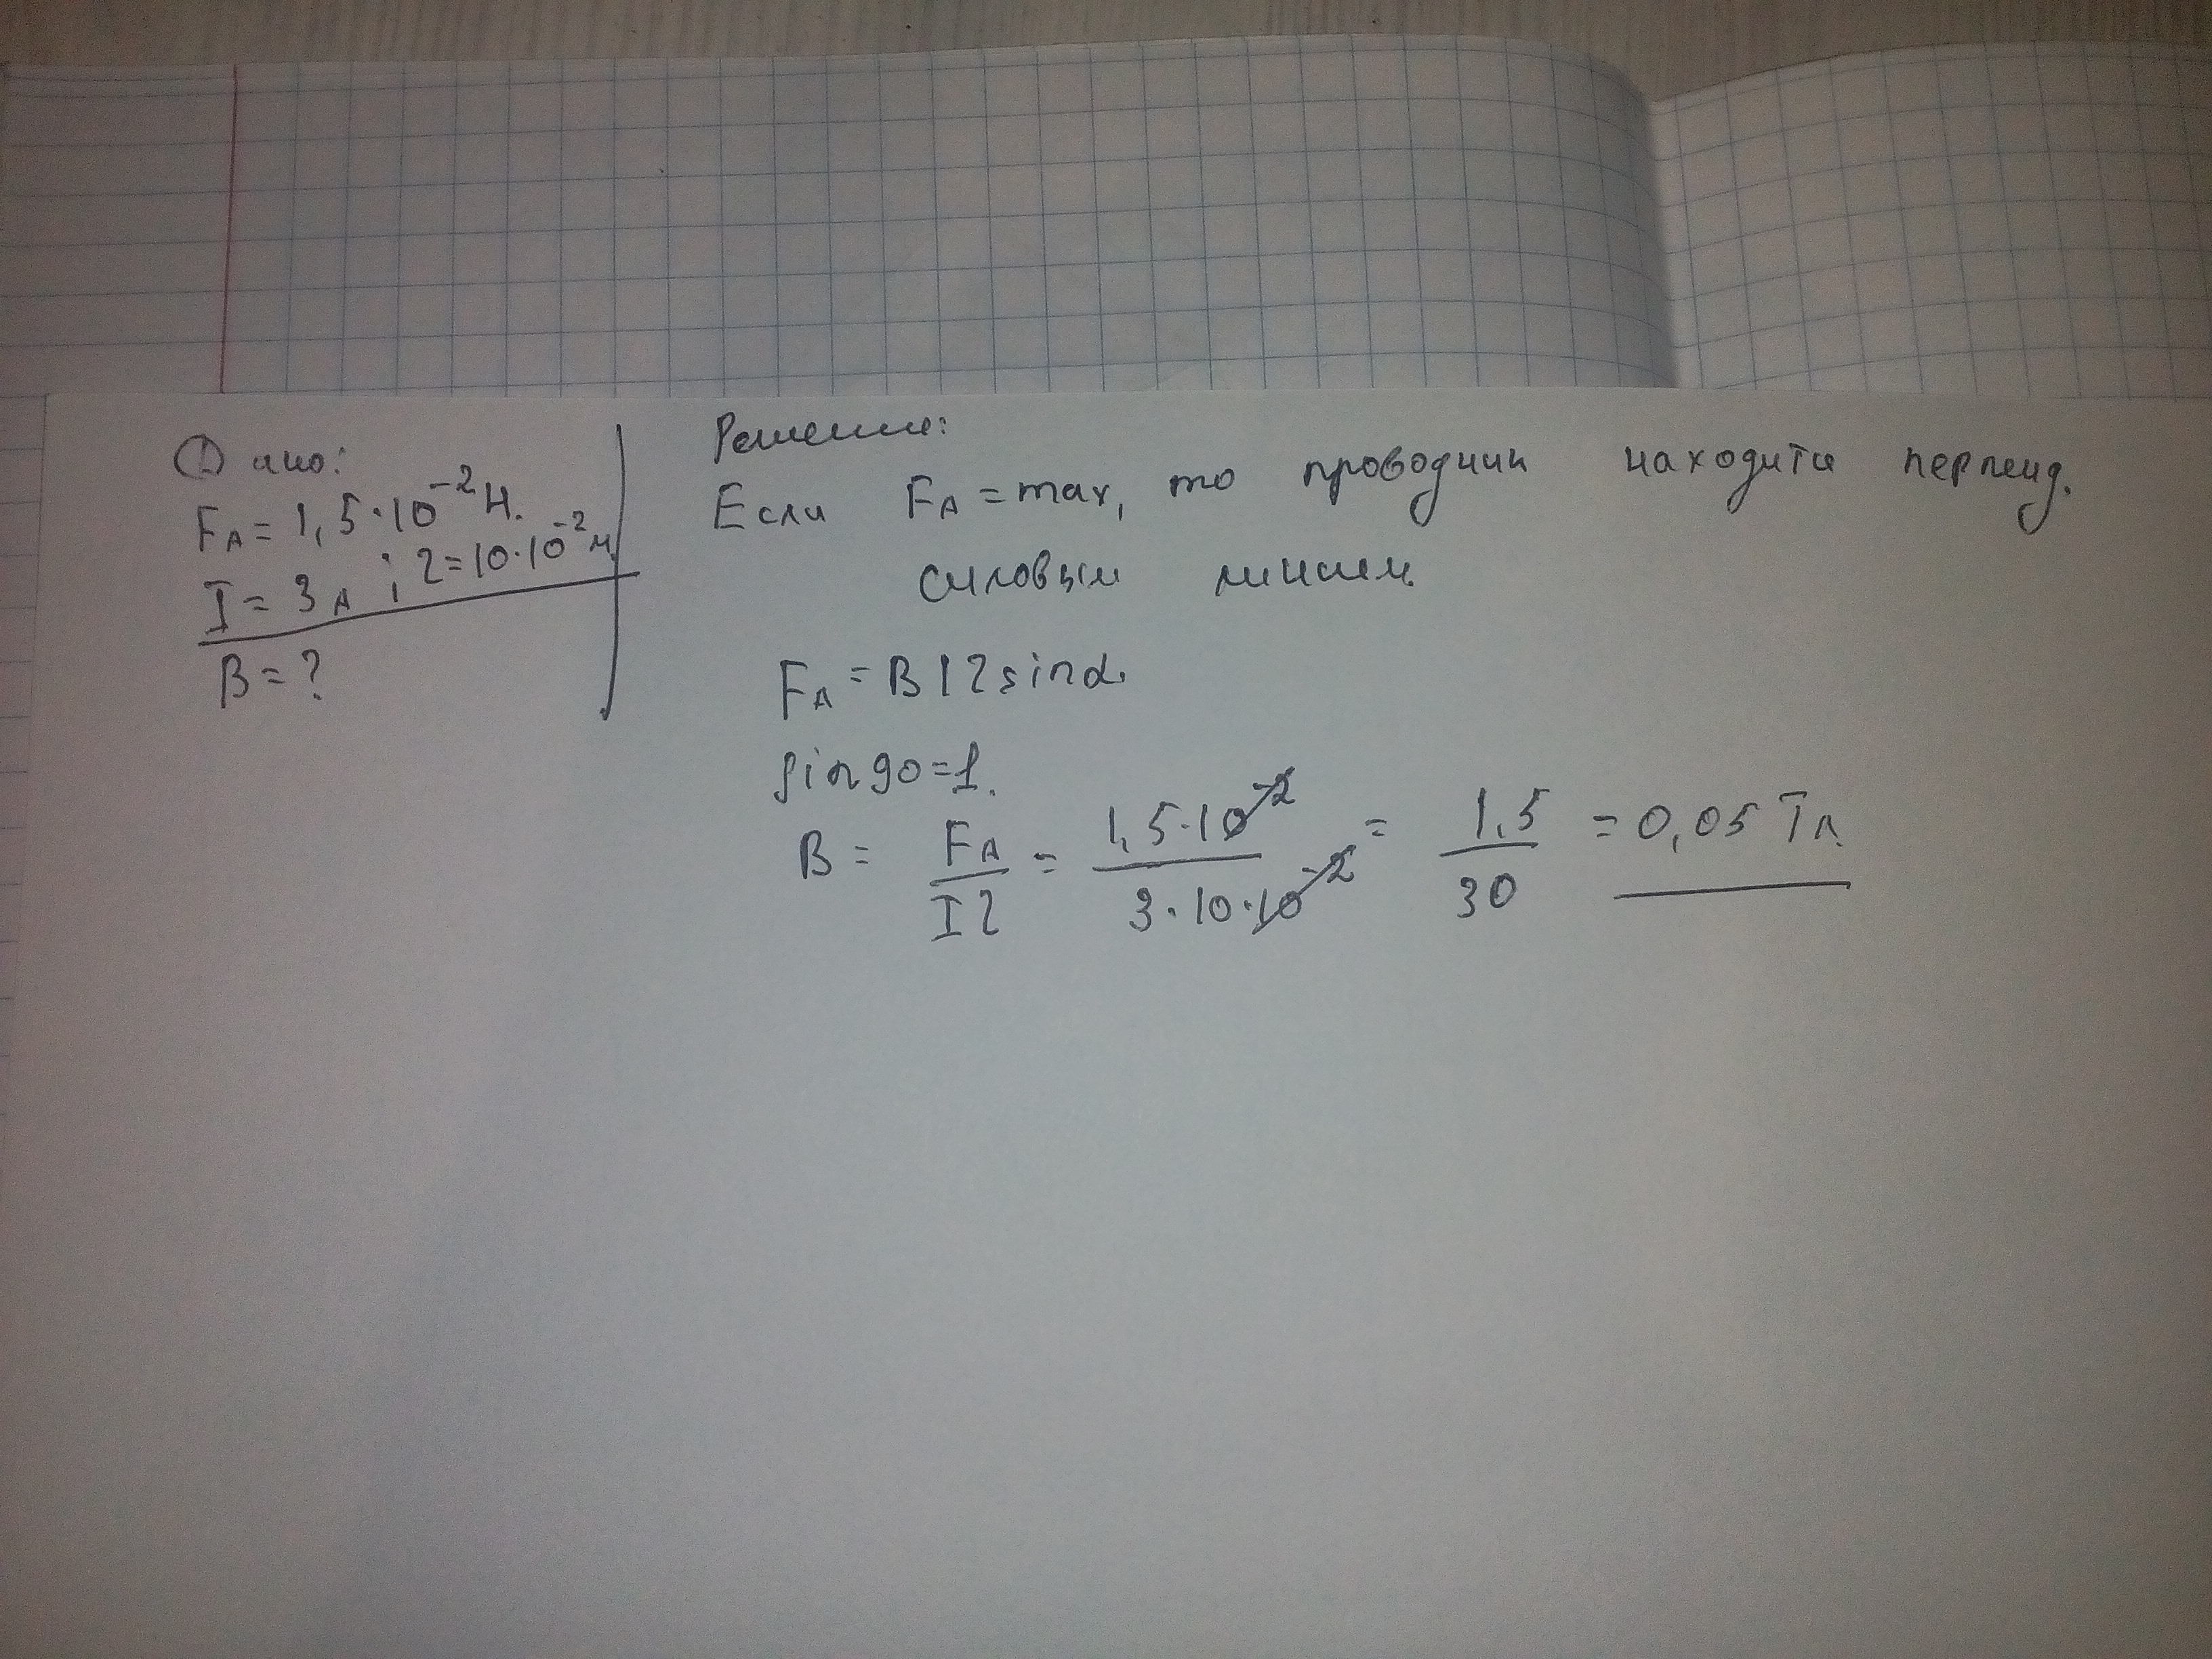 Дано:
F_A = 1,5·10^-2 Н.
I = 3 А ; l = 10·10^-2 м
B = ?
Решение:
Если F_A = max, то проводник находится перпенд.
силовым линиям.
F_A = B I l sinα.
sin90 = 1.
B = F_A / I l = 1,5·10^-2 / 3·10·10^-2 = 1,5 / 30 = 0,05 Тл.